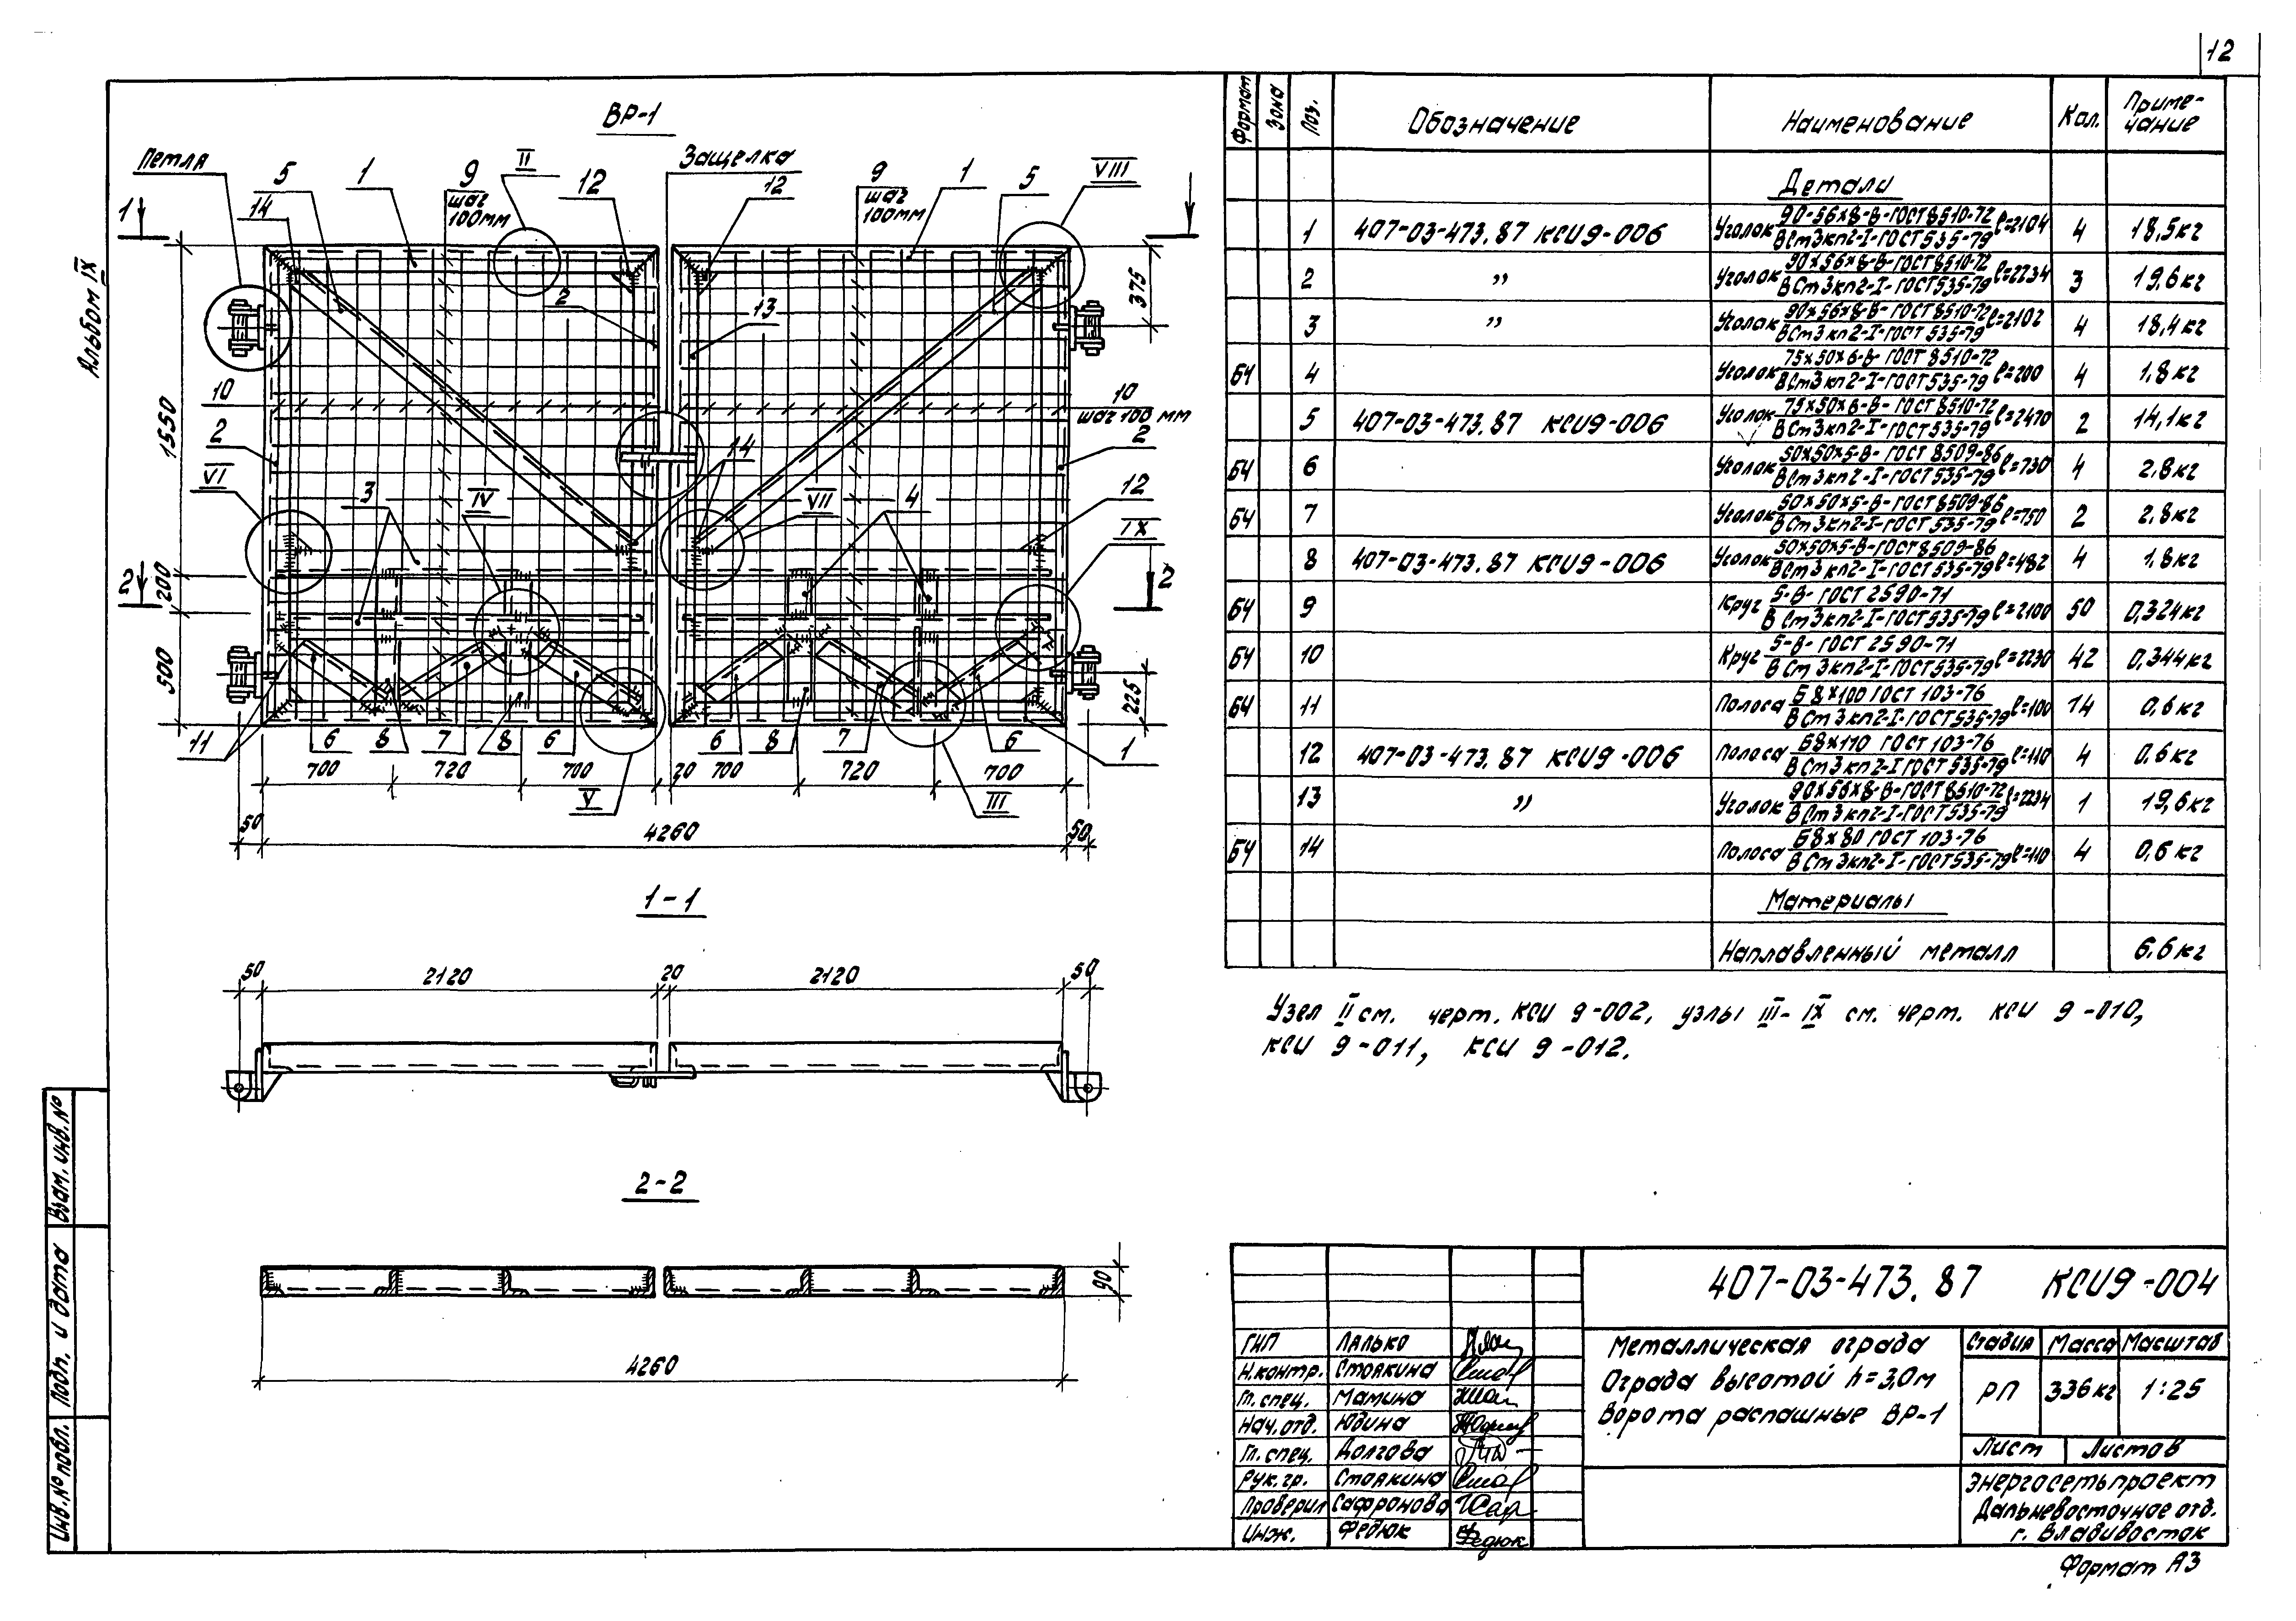 12
Альбом IX
ВР-1
Петля
5
1
9
шаг
100мм
II
12
Защелка
12
9
шаг
100мм
1
5
VIII
14
1
2
13
375
10
10
шаг 100 мм
1550
2
2
VI
3
IV
VII
4
14
12
IX
2
200
2
500
225
11
6
8
7
8
6
6
8
7
6
1
700
720
700
20
700
720
700
V
III
50
4260
50
1-1
50
2120
20
2120
50
2-2
90
4260
Формат
Зона
Поз.
Обозначение
Наименование
Кол.
Приме-
чание
Детали
1 407-03-473.87 КСИ9-006 Уголок 90-56х8-В-ГОСТ8510-72 / ВСт3кп2-I-ГОСТ535-79 ℓ=2104 4 18,5кг
2 " Уголок 90х56х8-В-ГОСТ8510-72 / ВСт3кп2-I-ГОСТ535-79 ℓ=2234 3 19,6кг
3 " Уголок 90х56х8-В-ГОСТ8510-72 / ВСт3кп2-I-ГОСТ535-79 ℓ=2102 4 18,4кг
БЧ 4 Уголок 75х50х6-В-ГОСТ8510-72 / ВСт3кп2-I-ГОСТ535-79 ℓ=200 4 1,8кг
5 407-03-473.87 КСИ9-006 Уголок 75х50х6-В-ГОСТ8510-72 / ВСт3кп2-I-ГОСТ535-79 ℓ=2470 2 14,1кг
БЧ 6 Уголок 50х50х5-В-ГОСТ8509-86 / ВСт3кп2-I-ГОСТ535-79 ℓ=730 4 2,8кг
БЧ 7 Уголок 50х50х5-В-ГОСТ8509-86 / ВСт3кп2-I-ГОСТ535-79 ℓ=750 2 2,8кг
8 407-03-473.87 КСИ9-006 Уголок 50х50х5-В-ГОСТ8509-86 / ВСт3кп2-I-ГОСТ535-79 ℓ=482 4 1,8кг
БЧ 9 Круг 5-В-ГОСТ2590-71 / ВСт3кп2-I-ГОСТ535-79 ℓ=2100 50 0,324кг
БЧ 10 Круг 5-В-ГОСТ2590-71 / ВСт3кп2-I-ГОСТ535-79 ℓ=2230 42 0,344кг
БЧ 11 Полоса Б8х100 ГОСТ 103-76 / ВСт3кп2-I-ГОСТ535-79 ℓ=100 14 0,6кг
12 407-03-473.87 КСИ9-006 Полоса Б8х110 ГОСТ 103-76 / ВСт3кп2-I ГОСТ535-79 ℓ=110 4 0,6кг
13 " Уголок 90х56х8-В-ГОСТ8510-72 / ВСт3кп2-I-ГОСТ535-79 ℓ=2234 1 19,6кг
БЧ 14 Полоса Б8х80 ГОСТ 103-76 / ВСт3кп2-I-ГОСТ535-79 ℓ=110 4 0,6кг
Материалы
Наплавленный металл 6,6кг
Узел II см. черт. КСИ 9-002, узлы III-IX см. черт. КСИ 9-010,
КСИ 9-011, КСИ 9-012.
Взам. инв. №
Подп. и дата
Инв. № подл.
407-03-473.87 КСИ9-004
ГИП Лялько
Н.контр. Стоякина
Гл. спец. Мамина
Нач. отд. Юдина
Гл. спец. Долгова
Рук. гр. Стоякина
Проверил Сафронова
Инж. Федюк
Федюк
Металлическая ограда
Ограда высотой h=3,0м
Ворота распашные ВР-1
Стадия Масса Масштаб
РП 336кг 1:25
Лист Листов
Энергосетьпроект
Дальневосточное отд.
г. Владивосток
Формат А3